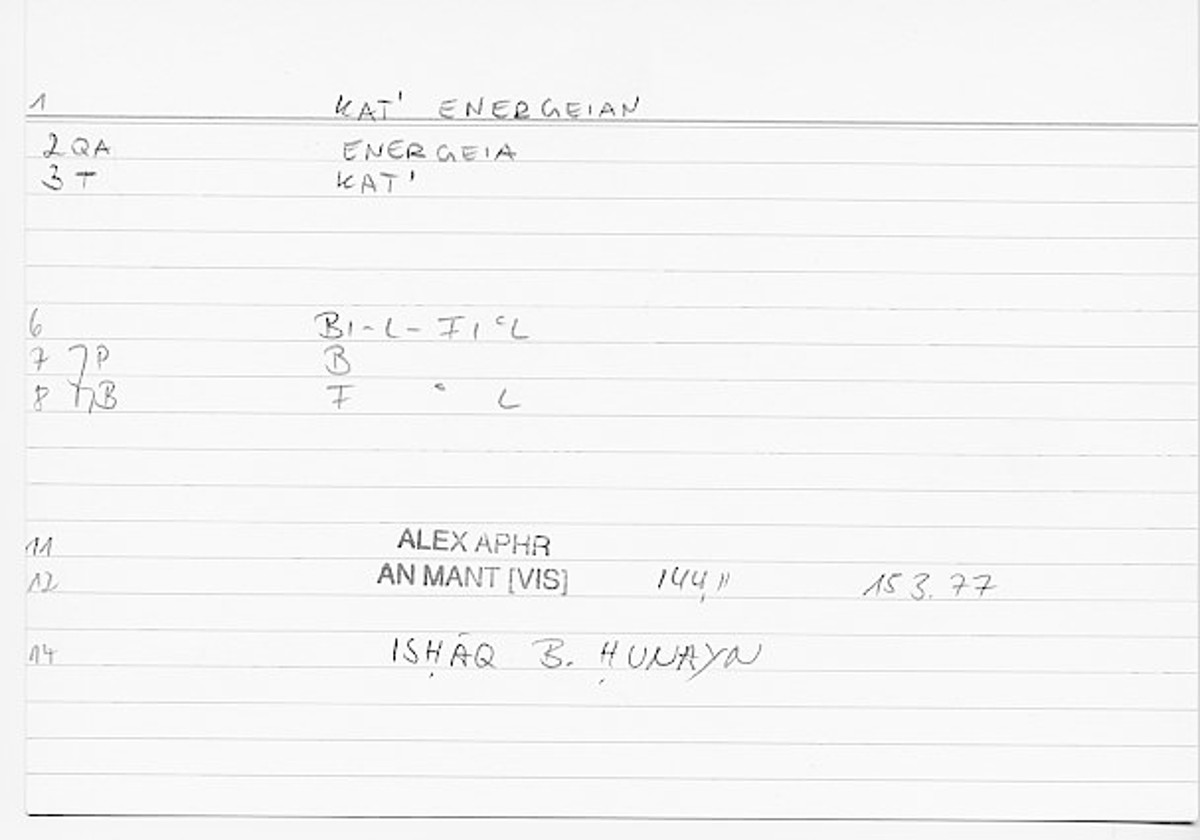 1 KAT' ENERGEIAN
2 QA ENERGEIA
3 T KAT'
6 BI-L-FIʿL
7 P B
8 B F ʿ L
11 ALEX APHR
12 AN MANT [VIS] 144,11 153.77
14 ISḤĀQ B. ḤUNAYN